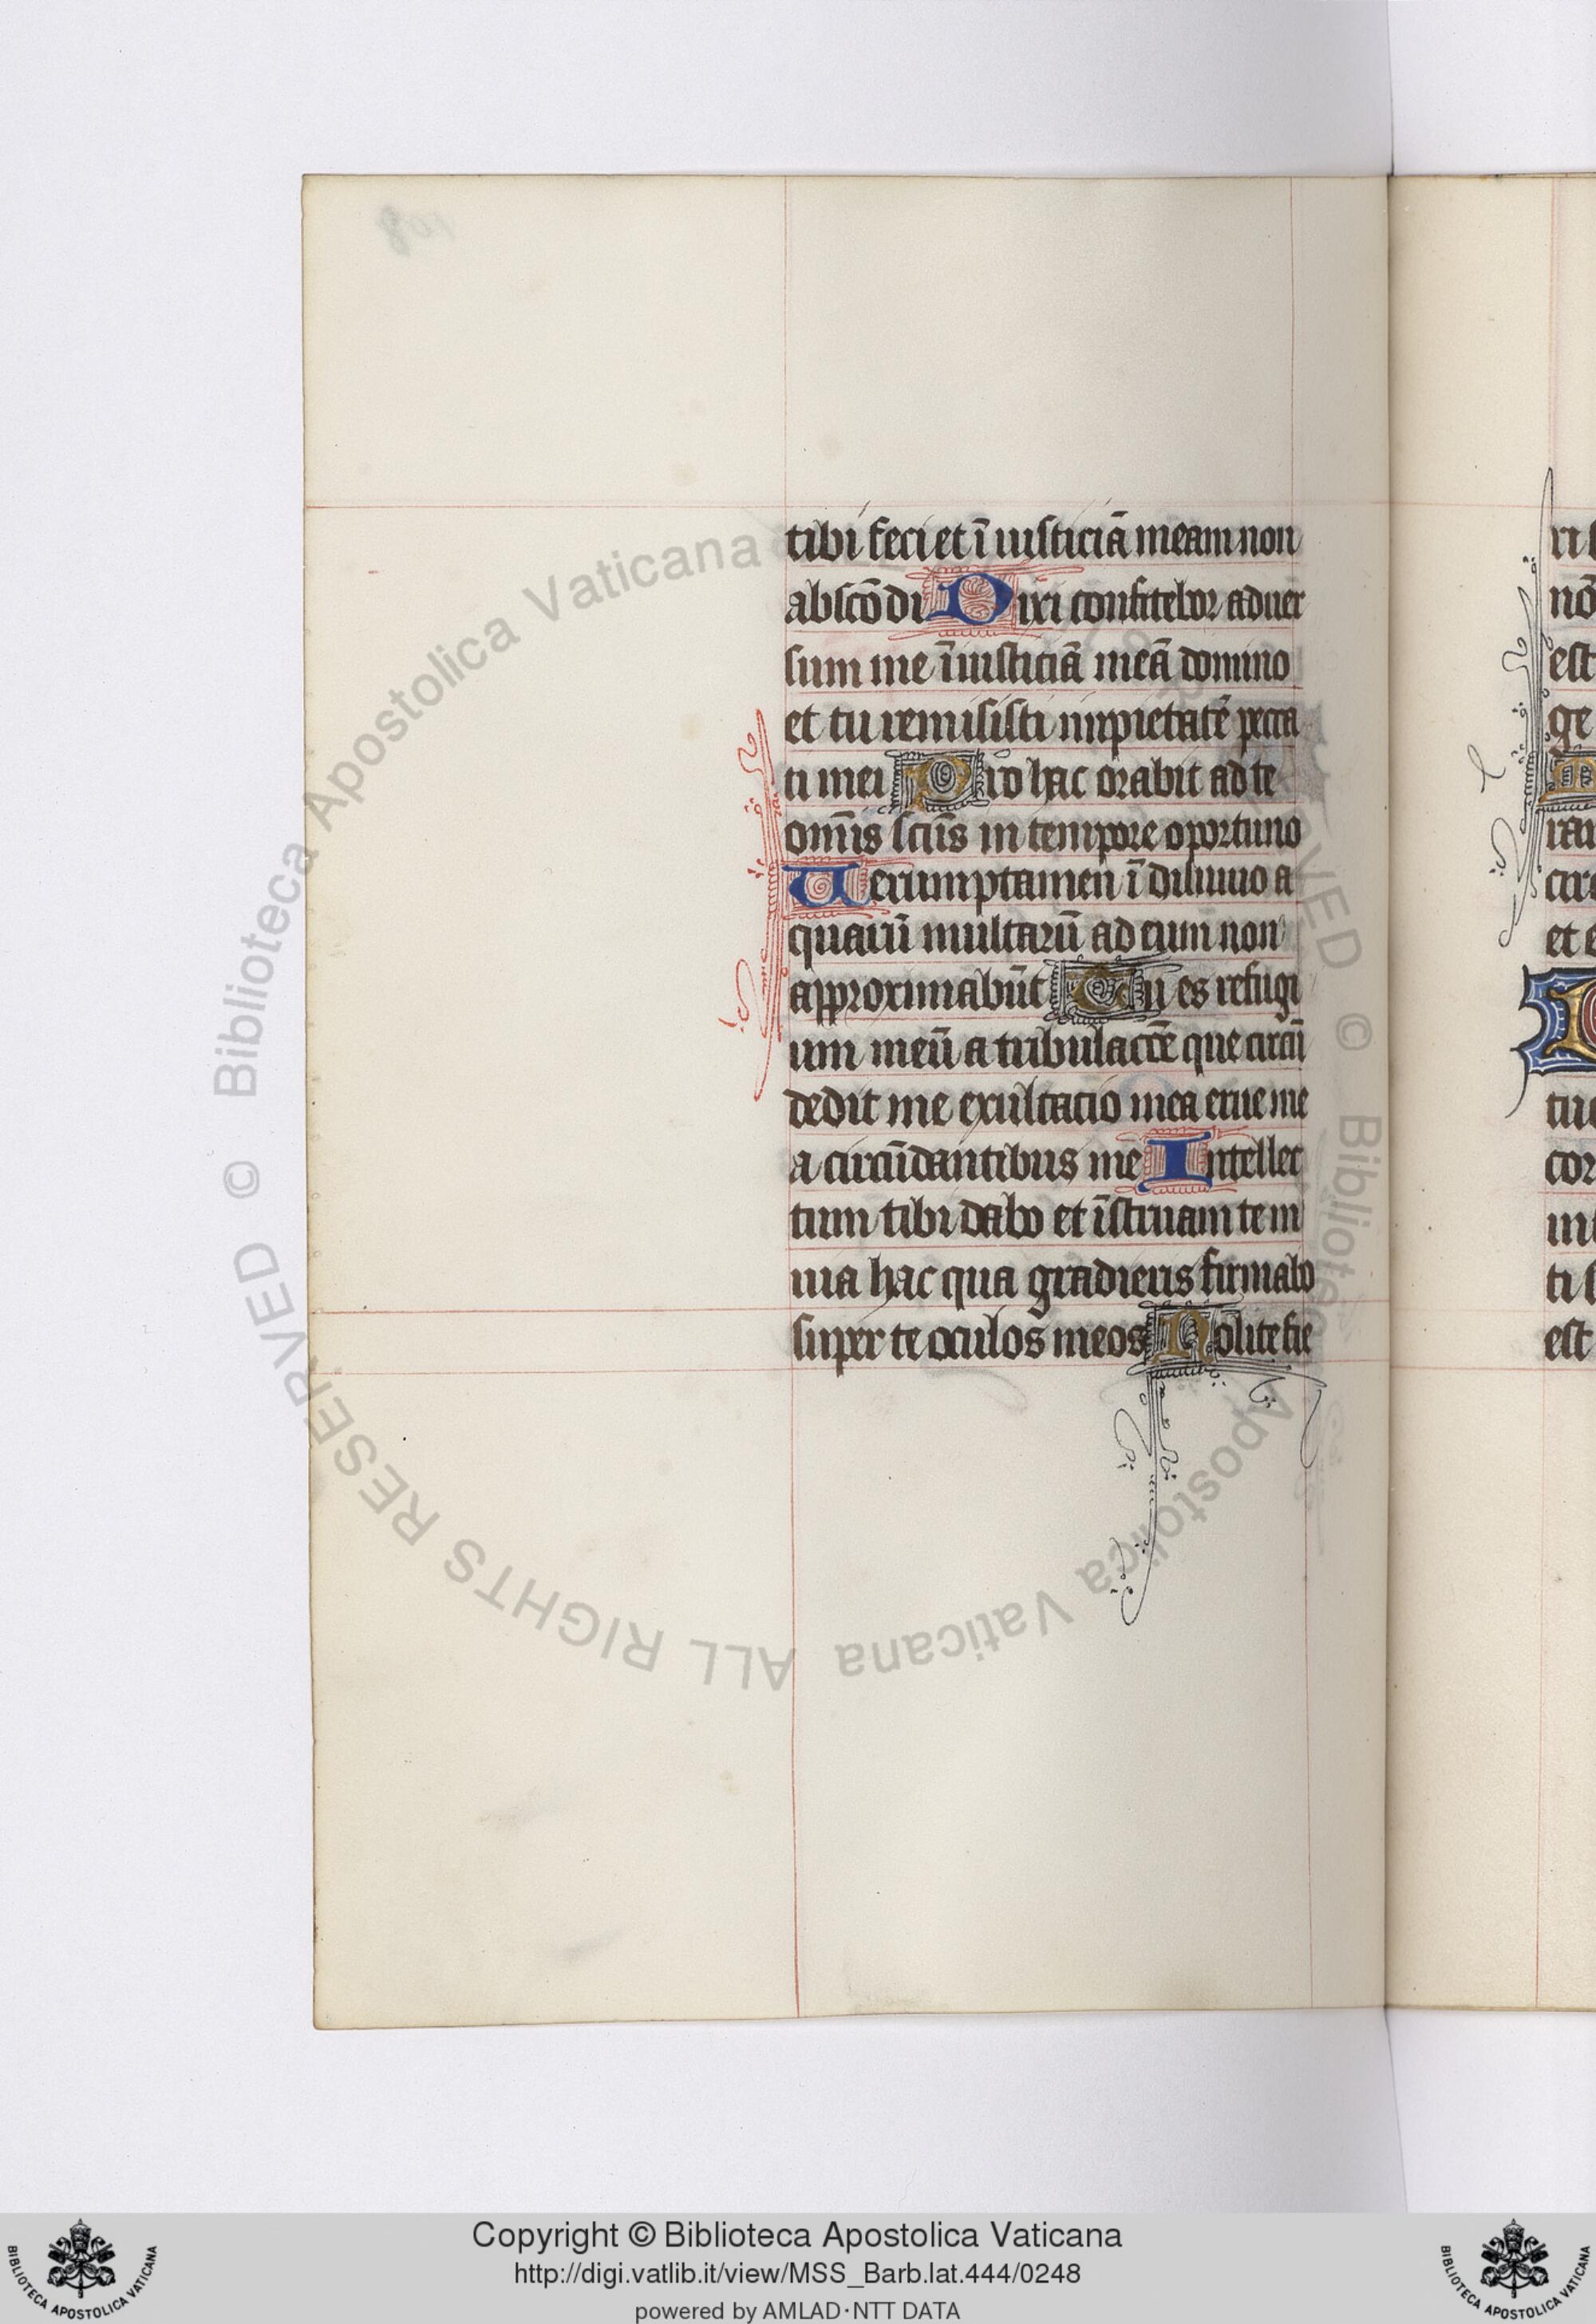 tibi feci et ī iusticiā meam non
abscōdi Dixi confitebor aduer
sum me īiusticiā meā domino
et tu remisisti impietatē pecca
ti mei Pro hac orabit ad te
om̄is sc̄us in tempore oportuno
Uerumptamen ī diluuio a
quarū multarū ad eum non
approximabūt Tu es refugi
um meū a tribulac̄cē que circū
dedit me exultatio mea erue me
a circūdantibus me Intellec
tum tibi dabo et īstruam te in
uia hac qua gradieris firmabo
super te oculos meos Nolite fie
ri
nō
est
ge
rau
et
tuo
cor
ti
est
© Biblioteca Apostolica Vaticana
ALL RIGHTS RESERVED
© Biblioteca Apostolica Vaticana
Copyright © Biblioteca Apostolica Vaticana
http://digi.vatlib.it/view/MSS_Barb.lat.444/0248
powered by AMLAD·NTT DATA
BIBLIOTECA APOSTOLICA VATICANA
BIBLIOTECA APOSTOLICA VATICANA